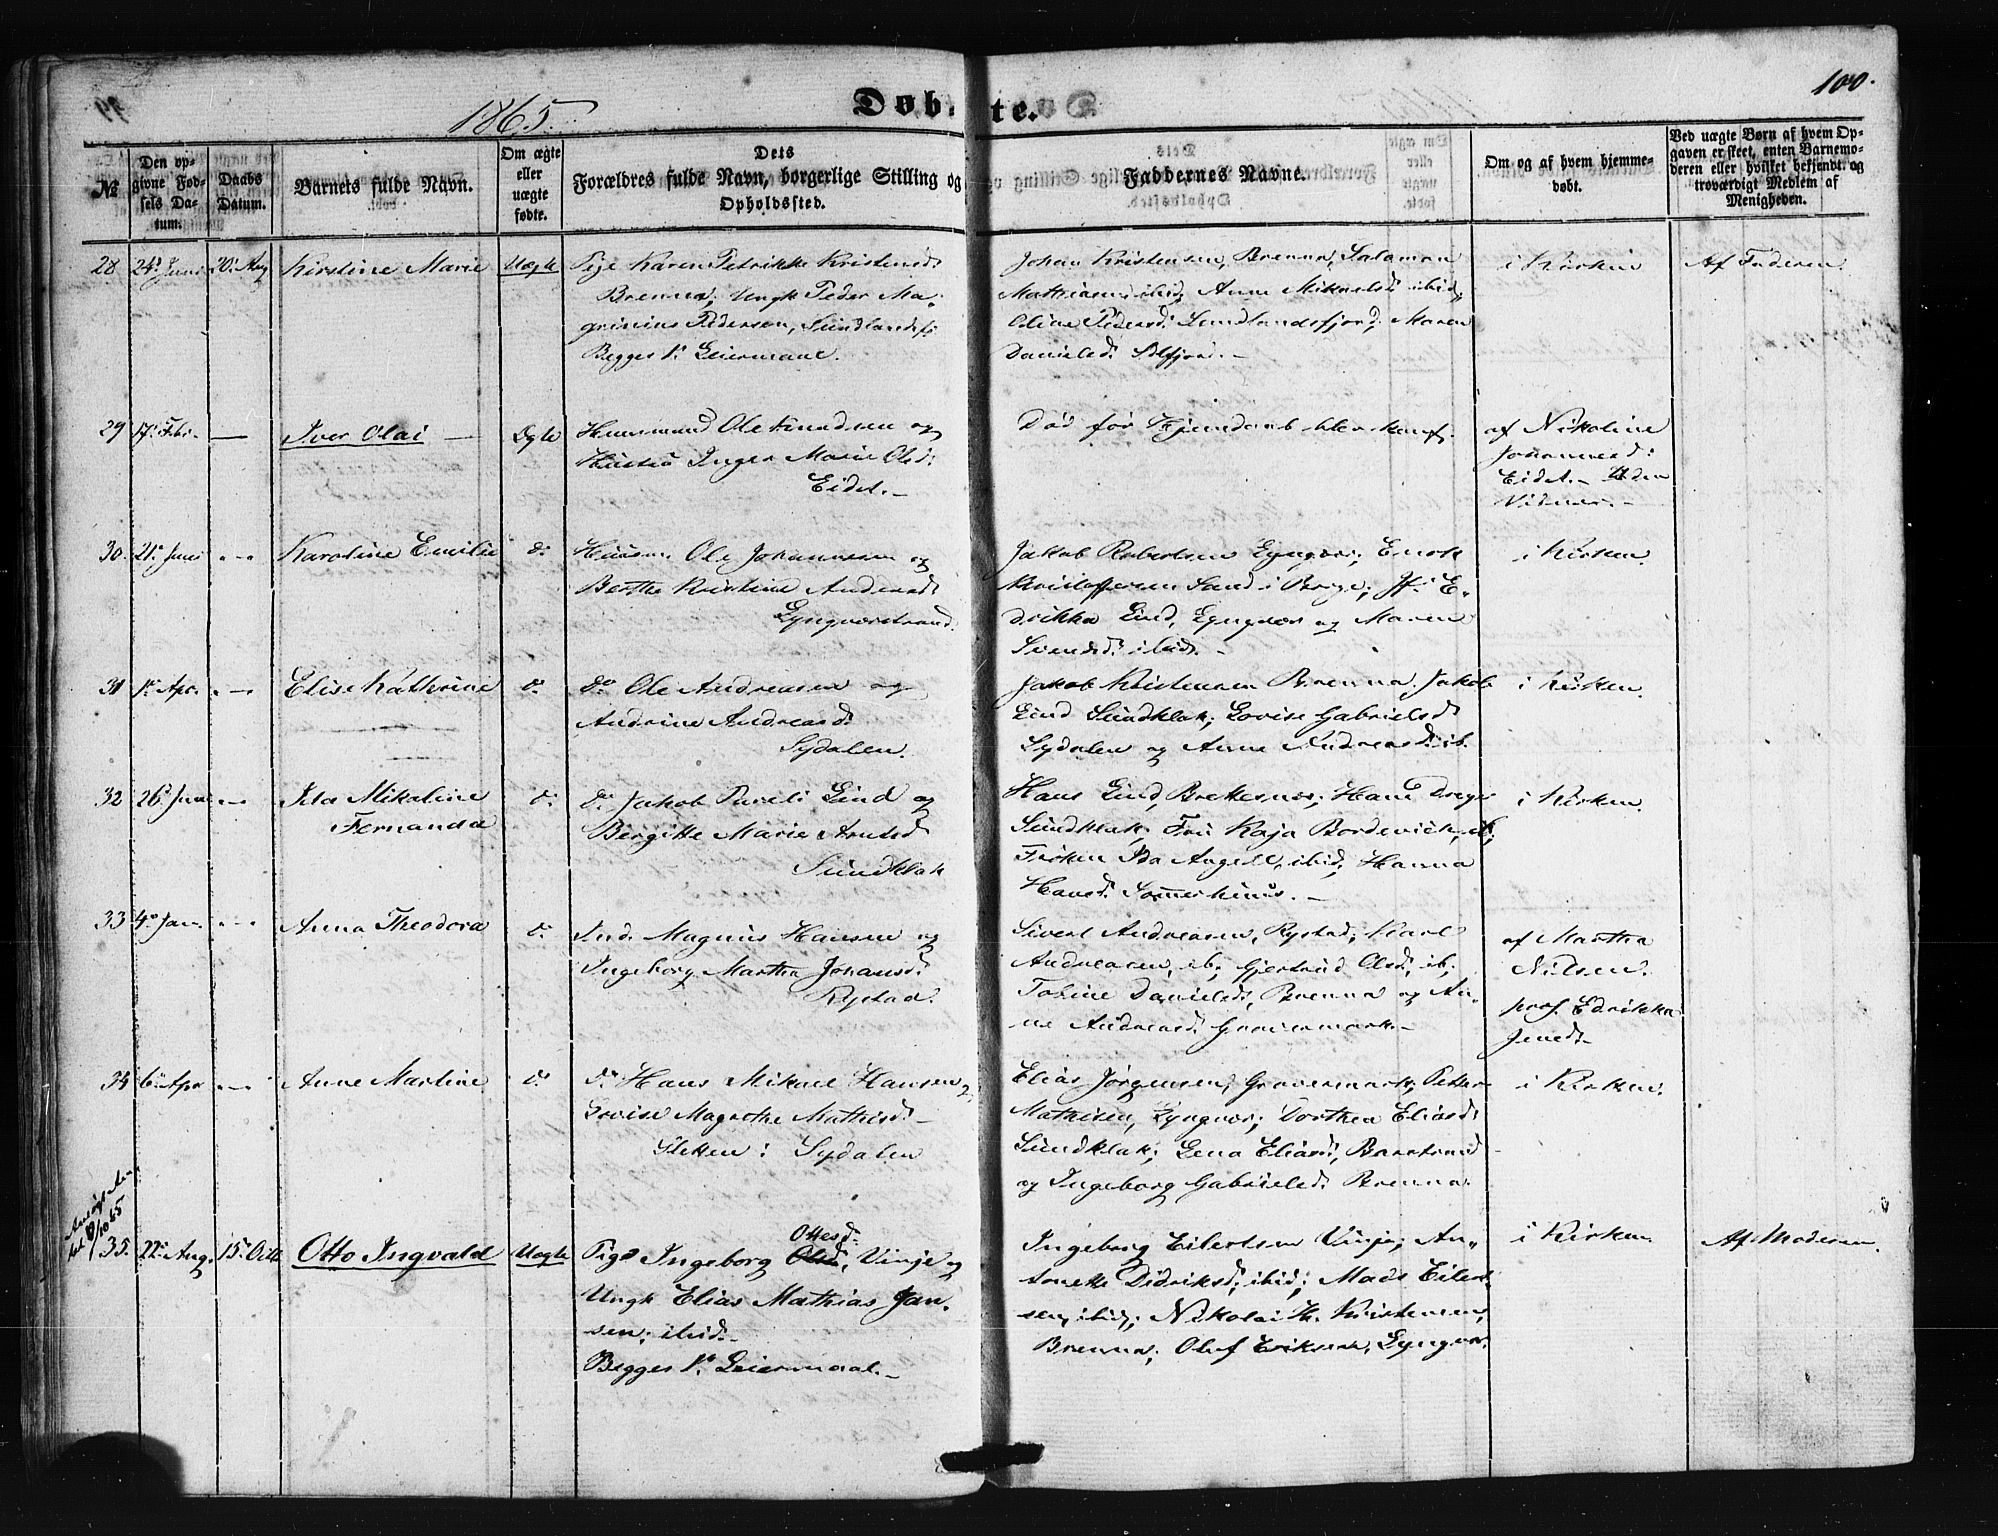 1865.
Døbte.
100.
№
Den opgivne Fødsels Datum.
Daabs Datum.
Barnets fulde Navn.
Om ægte eller uægte fødte.
Dets Forældres fulde Navn, borgerlige Stilling og Opholdssted.
Faddernes Navne.
Om og af hvem hjemmedøbt.
Ved uægte Børn af hvem Opgaven er skeet, enten Barnemoderen eller hvilket bekjendt og troværdigt Medlem af Menigheden.
28 24d Juni 20d Aug Kirstine Marie Uægte
Pige Karen Petrikke Kristensd:
Brenna, Ungk Peder Ma-
grinius Pedersen, Sundlandsfj:
Begges 1s Leiermaal.
Johan Kristensen, Brenna; Salamon
Mathiasen ibid; Anne Mikaelsd: ibid;
Oline Pedersd: Sundlandsfjord; Maren
Danielsd: Selfjord.
i Kirken
Af Faderen.
29 17d Febr. — Iver Olai — Ægte
Huusmand Ole Knudsen og
Hustru Inger Marie Olsd:
Eidet.
Død før Hjemdaab blev konf.
af Nikoline
Johannesd:
Eidet. Uden
Vidner.
30. 21d Juni Karoline Emilie do
Huusm. Ole Johannesen og
Berthe Kristine Andersd:
Lyngværstrand.
Jakob Robertsen Lyngvær; Enok
Kristoffersen Sand i Borge; Jf: E-
drikka Lind, Lyngvær og Maren
Svendsd: ibid.
i Kirken.
31 1d Apr. Elise Kathrine do
do Ole Andreasen og
Andrine Andreasd:
Sydalen.
Jakob Kristensen Brenna, Jakob
Lind Sundklak; Lovise Gabrielsd:
Sydalen og Anne Andreasd: ib.
i Kirken.
32 26d Juni Ida Mikaline
Fernanda do
do Jakob Pareli Lind og
Birgitte Marie Arntsd:
Sundklak
Hans Lind, Brettesnæs; Hans Dreyer
Sundklak; Fru Kaja Bordevick, ib;
Frøken Ida Angell, ibid; Hanna
Hansd: Sommerhuus.
i Kirken.
33 4d Jan. Anna Theodora do
Ind. Magnus Hansen og
Ingeborg Martha Johansd:
Rystad.
Sivert Andreasen, Rystad; Karl
Andreasen, ib; Gjertrud Olsd: ib;
Tobine Danielsd: Brenna og An-
ne Andreasd: Gravermark.
af Martha
Nilsen.
prof. Edrikka
Jensd:
34 6d Apr Anne Martine do
do Hans Mikael Hansen og
Lovise Magrethe Mathisd:
i Sydalen
Elias Jørgensen, Gravermark; Petter
Mathisen, Lyngvær; Dorthea Eliasd:
Sundklak; Lena Eliasd: Barstrand
og Ingeborg Gabrielsd: Brenna.
i Kirken.
8/10 65
35. 22d Aug. 15d Octb Otto Ingvald Uægte
Ottesd:
Pige Ingeborg Olsd:, Vinje og
Ungk Elias Mathias Jan-
sen, ibid.
Begges 1s Leiermaal.
Ingeborg Eilertsen Vinje; An-
tonette Didriksd: ibid; Mads Eilert-
sen, ibid; Nikolai H. Kristensen,
Brenna; Oluf Eriksen, Lyngvær.
i Kirken
Af Moderen.